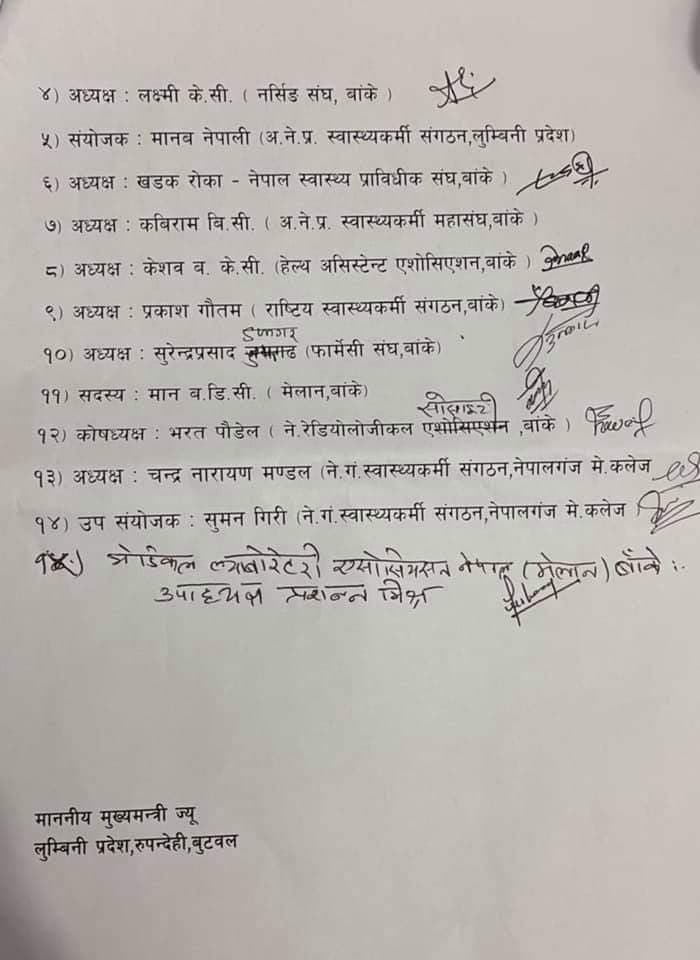 ४) अध्यक्ष : लक्ष्मी के.सी. ( नर्सिङ संघ, बांके )
५) संयोजक : मानब नेपाली (अ.ने.प्र. स्वास्थ्यकर्मी संगठन,लुम्बिनी प्रदेश)
६) अध्यक्ष : खडक रोका - नेपाल स्वास्थ्य प्राविधीक संघ,बांके )
७) अध्यक्ष : कबिराम बि.सी. ( अ.ने.प्र. स्वास्थ्यकर्मी महासंघ,बांके )
८) अध्यक्ष : केशव ब. के.सी. (हेल्थ असिस्टेन्ट एशोसिएशन,बांके )
९) अध्यक्ष : प्रकाश गौतम ( राष्टिय स्वास्थ्यकर्मी संगठन,बांके)
१०) अध्यक्ष : सुरेन्द्रप्रसाद (फार्मेसी संघ,बांके)
११) सदस्य : मान ब.डि.सी. ( मेलान,बांके)
सोसाइटी
१२) कोषध्यक्ष : भरत पौडेल ( ने.रेडियोलोजीकल एशोसिएशन ,बांके )
१३) अध्यक्ष : चन्द्र नारायण मण्डल (ने.गं.स्वास्थ्यकर्मी संगठन,नेपालगंज मे.कलेज
१४) उप संयोजक : सुमन गिरी (ने.गं.स्वास्थ्यकर्मी संगठन,नेपालगंज मे.कलेज
१५) मेडिकल ल्याबोरेटरी एसोसियसन नेपाल (मेलान) बाँके :.
उपाध्यक्ष प्रशन्न मिश्र
माननीय मुख्यमन्त्री ज्यू
लुम्बिनी प्रदेश,रुपन्देही,बुटवल